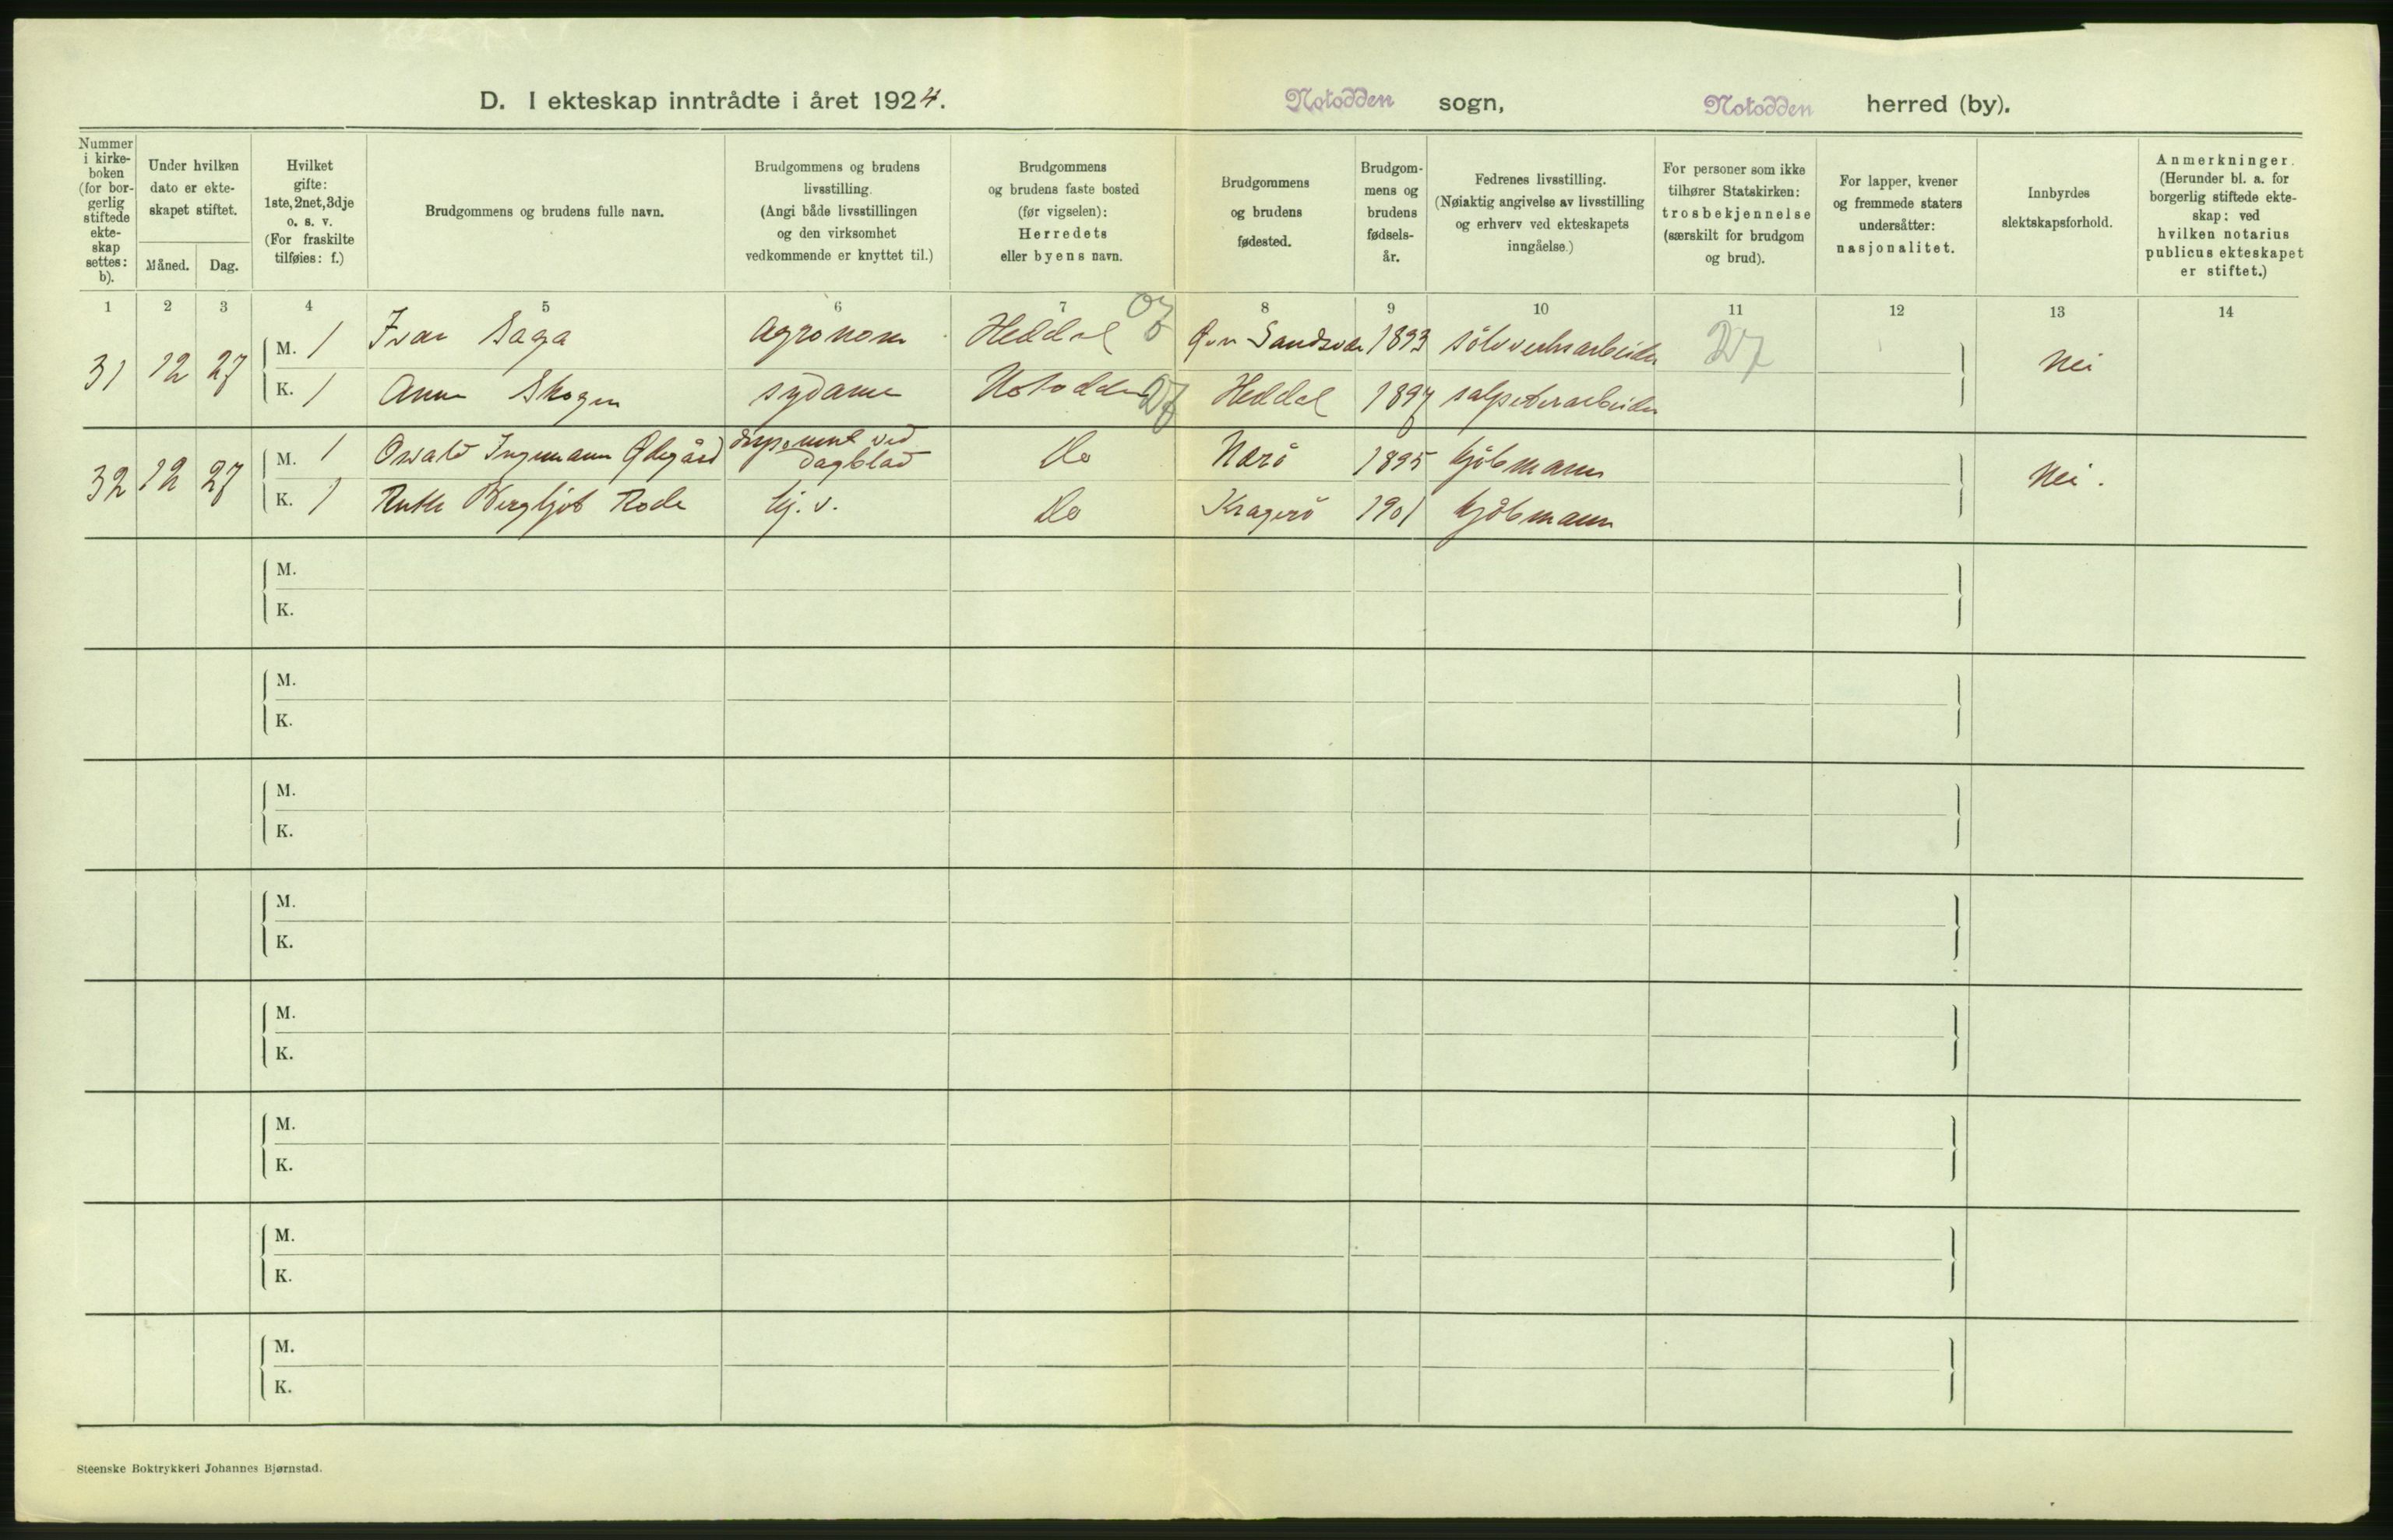 D. I ekteskap inntrådte i året 1924. Notodden sogn, Notodden herred (by).
Nummer i kirke- boken (for bor- gerlig stiftede ekte- skap settes: b).
Under hvilken dato er ekte- skapet stiftet.
Måned. Dag.
Hvilket gifte: 1ste, 2net, 3dje o. s. v. (For fraskilte tilføies: f.)
Brudgommens og brudens fulle navn.
Brudgommens og brudens livsstilling. (Angi både livsstillingen og den virksomhet vedkommende er knyttet til.)
Brudgommens og brudens faste bosted (før vigselen): Herredets eller byens navn.
Brudgommens og brudens fødested.
Brudgom- mens og brudens fødsels- år.
Fedrenes livsstilling. (Nøiaktig angivelse av livsstilling og erhverv ved ekteskapets inngåelse.)
For personer som ikke tilhører Statskirken: trosbekjennelse (særskilt for brudgom og brud).
For lapper, kvener og fremmede staters undersåtter: nasjonalitet.
Innbyrdes slektskapsforhold.
Anmerkninger. (Herunder bl. a. for borgerlig stiftede ekte- skap: ved hvilken notarius publicus ekteskapet er stiftet.)
1 2 3 4 5 6 7 8 9 10 11 12 13 14
31 12 27 M. 1 Ivar Saga Agronom Heddal Øvr Sandsvær 1893 sølvverksarbeider 27 Nei
K. 1 Anne Skogen sydame Notodden 27 Heddal 1897 salpeterarbeider
32 12 27 M. 1 Oswald Ingemann Ødegård disponent ved dagblad Do Nærö 1895 kjöbmann Nei.
K. 1 Ruth Bergljot Rode hj. v. Do Kragerö 1901 kjöbmann
M.
K.
M.
K.
M.
K.
M.
K.
M.
K.
M.
K.
M.
K.
M.
K.
Steenske Boktrykkeri Johannes Bjørnstad.